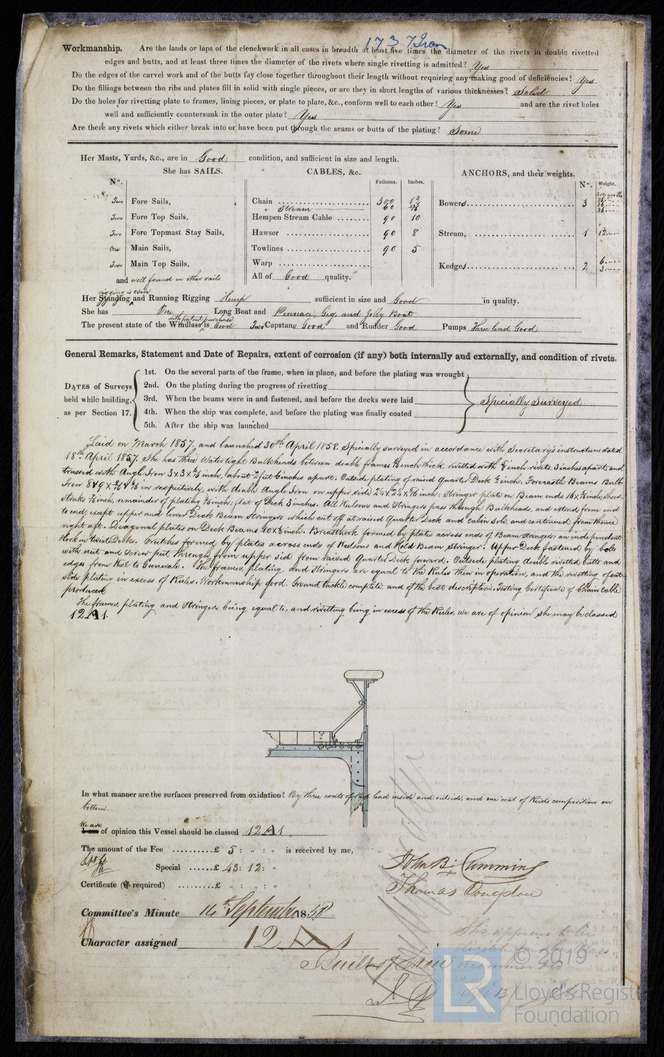 1737 Iron
Workmanship. Are the lands or laps of the clenchwork in all cases in breadth at least five times the diameter of the rivets in double rivetted
edges and butts, and at least three times the diameter of the rivets where single rivetting is admitted? Yes
Do the edges of the carvel work and of the butts fay close together throughout their length without requiring any making good of deficiencies? Yes
Do the fillings between the ribs and plates fill in solid with single pieces, or are they in short lengths of various thicknesses? Solid
Do the holes for rivetting plate to frames, lining pieces, or plate to plate, &c., conform well to each other? Yes and are the rivet holes
well and sufficiently countersunk in the outer plate? Yes
Are there any rivets which either break into or have been put through the seams or butts of the plating? Some
Her Masts, Yards, &c., are in Good condition, and sufficient in size and length.
She has SAILS. CABLES, &c. ANCHORS, and their weights.
No. Fathoms. Inches. No. Weight.
Two Fore Sails, Chain 300 Bowers 3
Stream
Two Fore Top Sails, Hempen Stream Cable 90 10
Two Fore Topmast Stay Sails, Hawser 90 8 Stream, 1
One Main Sails, Towlines 90 5
Two Main Top Sails, Warp Kedges 2
and well found in other sails All of Good quality.
rigging is Wire
Her Standing and Running Rigging Hemp sufficient in size and Good in quality.
She has One Long Boat and Pinnace, Gig, and Jolly Boat
with patent purchase
The present state of the Windlass is Good Two Capstans Good and Rudder Good Pumps Three lead Good
General Remarks, Statement and Date of Repairs, extent of corrosion (if any) both internally and externally, and condition of rivets.
DATES of Surveys held while building, as per Section 17.
1st. On the several parts of the frame, when in place, and before the plating was wrought
2nd. On the plating during the progress of rivetting
3rd. When the beams were in and fastened, and before the decks were laid Specially Surveyed
4th. When the ship was complete, and before the plating was finally coated
5th. After the ship was launched
Laid on March 1857, and launched 30th April 1858. Specially surveyed in accordance with Secretary's instructions dated
18th April 1857. She has three Watertight Bulkheads between double frames inch thick, riveted with inch rivets 3 inches apart and
trussed with Angle Iron 3 x 3 x inch, about 2 feet 6 inches apart. Outside plating of raised Quarter Deck inch. Forecastle Beams Bulb
Iron respectively, with double Angle Iron on upper side inch; Stringer plate on Beam ends
Strake inch, remainder of plating inch, flat of Deck 3 inches. All Kelsons and Stringers pass through Bulkheads, and extend from end
to end, except upper and lower Deck Beam stringers which cut off at raised Quarter Deck and cabin sole and continued from thence
right aft. Diagonal plates on Deck Beams inch. Breasthook formed by plates across ends of Beam stringers an independent
Hook in tween Decks. Crutches formed by plates across ends of Kelsons and Hold Beam Stringer. Upper Deck fastened by bolt
with nut and screw put through from upper side from raised Quarter Deck forward. Outside plating double rivetted butts and
edges from Keel to Gunwale. The frames, plating, and Stringers are equal to the Rules then in operation, and the rivetting of out-
side plating in excess of Rules. Workmanship good. Ground tackle complete and of the best description. Testing Certificate of Chain Cable
produced
The frames plating and Stringers being equal to, and rivetting being in excess of the Rules, we are of opinion she may be classed
12 A 1.
In what manner are the surfaces preserved from oxidation? By three coats of Red lead inside and outside and one coat of composition on
bottom.
We are
I am of opinion this Vessel should be classed 12 A 1
The amount of the Fee £ 5 : - : - is received by me,
Special £ 43 : 12 : -
Certificate (if required) £ : :
John B. Cumming
Thomas Congdon
Committee's Minute 14th September 1858
Character assigned 12 A 1
Built of Iron
LR © 2019
Lloyd's Register
Foundation